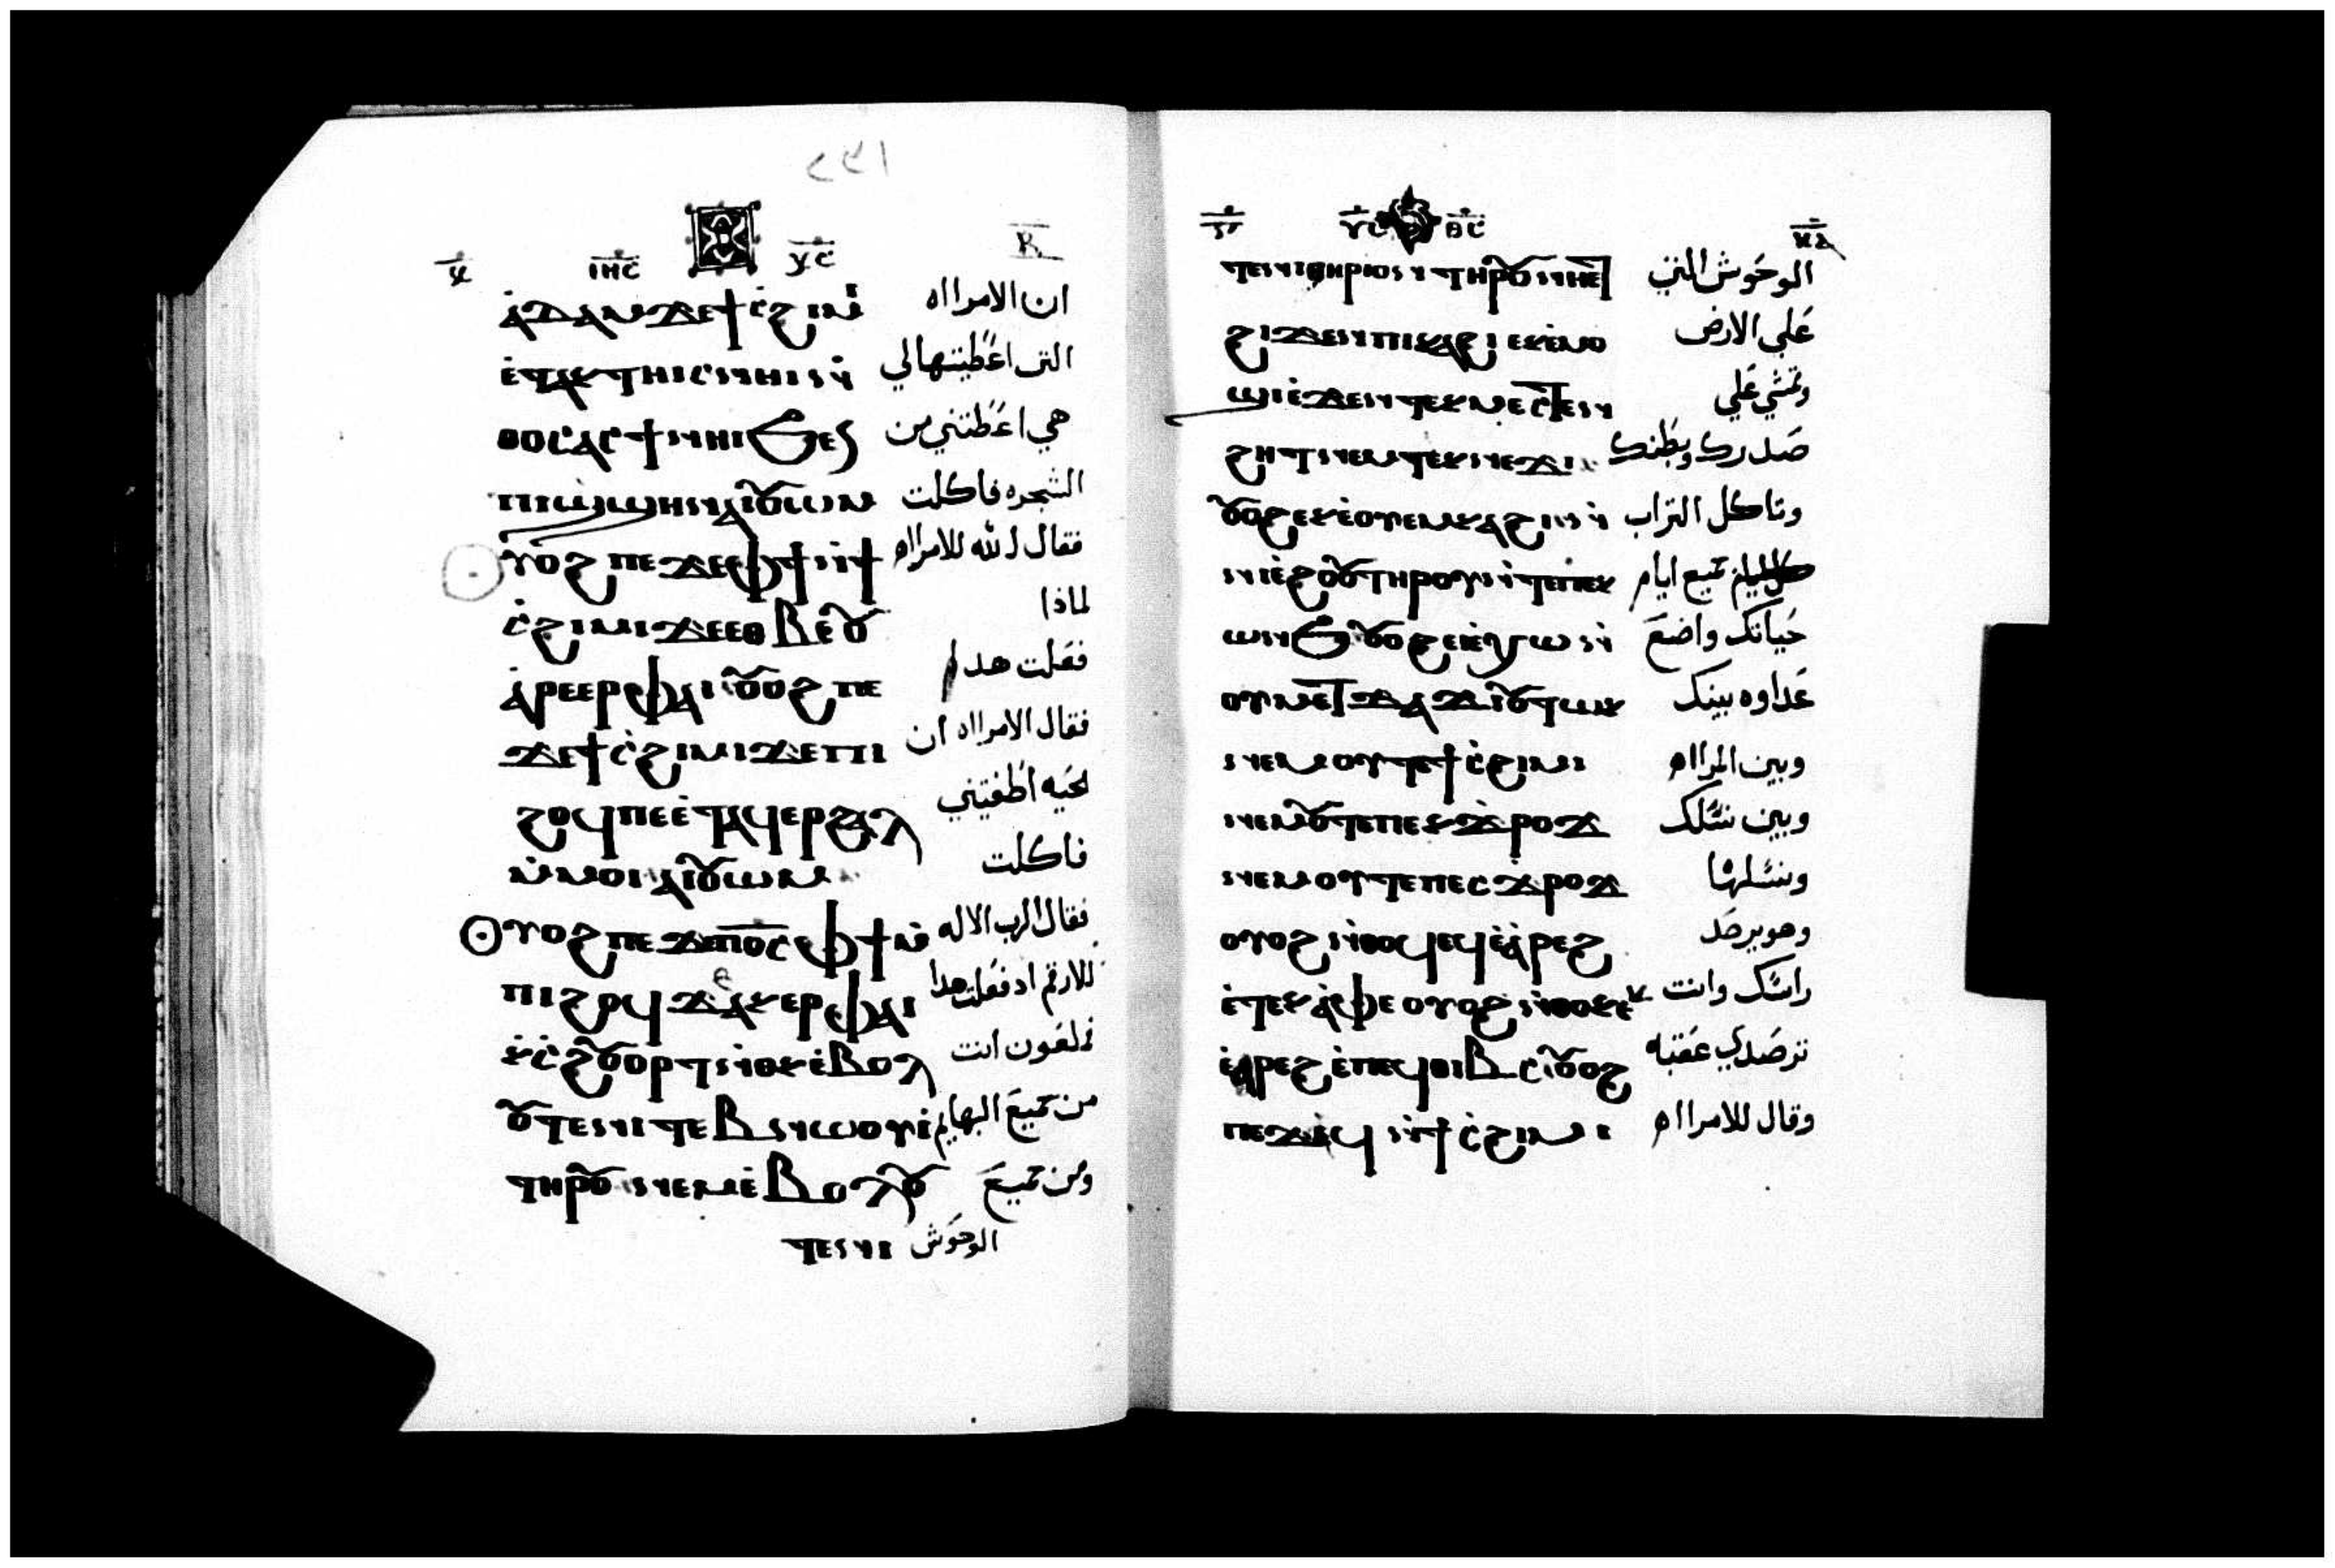 ⲁ̀ⲇⲁⲙ ϫⲉ ϯⲥ̀ϩⲓⲙⲓ ان الامرااه
ⲉ̀ⲧⲁⲕⲧⲏⲓⲥ ⲛⲏⲓ ⲛ̀ التى اعطيتها لي
ⲑⲟⲥ ⲁⲥϯ ⲛⲏⲓ ϧⲉⲛ هي اعطتني من
ⲡⲓϣ̀ϣⲏⲛ ⲁⲓⲟⲩⲱⲙ الشجره فاكلت
ⲟⲩⲟϩ ⲡⲉϫⲉ ⲫϯ ⲛ̀ϯ فقال الله للامرااه
ⲥ̀ϩⲓⲙⲓ ϫⲉ ⲉⲑⲃⲉ ⲟⲩ لماذا
ⲁ̀ⲣⲉⲉⲣ ⲫⲁⲓ ⲟⲩⲟϩ ⲡⲉ فعلت هدا
ϫⲉ ϯⲥ̀ϩⲓⲙⲓ ϫⲉ ⲡⲓ فقال الامرااه ان
ϩⲟϥ ⲡⲉ ⲉ̀ⲧⲁϥⲉⲣϩⲁⲗ الحيه
ⲙ̀ⲙⲟⲓ ⲁⲓⲟⲩⲱⲙ فاكلت
ⲟⲩⲟϩ ⲡⲉϫⲉ ⲡⲟ̅ⲥ̅ ⲫϯ ⲙ̀ فقال الرب الاله
ⲡⲓϩⲟϥ ϫⲉ ⲁⲕⲉⲣ ⲫⲁⲓ للارقم اد فعلت هدا
ⲕ̀ⲥ̀ϩⲟⲩⲟⲣⲧ ⲛ̀ⲑⲟⲕ ⲉ̀ⲃⲟⲗ ملعون انت
ⲟⲩⲧⲉ ⲛⲓⲧⲉⲃⲛⲱⲟⲩⲓ̀ من جميع البهايم
ⲧⲏⲣⲟⲩ ⲛⲉⲙ ⲉ̀ⲃⲟⲗ ⲟⲩ ومن جميع
ⲧⲉ ⲛⲓ الوحوش
ⲧⲉ ⲛⲓⲑⲏⲣⲓⲟⲛ ⲧⲏⲣⲟⲩ ⲛⲏⲉⲧ الوحوش التى
ϩⲓϫⲉⲛ ⲡⲓⲕⲁϩⲓ ⲉⲕⲉ̀ⲙⲟ على الارض
ϣⲓ ⲉ̀ϫⲉⲛ ⲧⲉⲕⲙⲉⲥⲧⲉⲛ وتمشي على
ϩⲏⲧ ⲛⲉⲙ ⲧⲉⲕⲛⲉϫⲓ صدرك وبطنك
ⲟⲩⲟϩ ⲉⲕⲉ̀ⲟⲩⲉⲙ ⲕⲁϩⲓ ⲛ̀ وتاكل التراب
ⲛⲓⲉ̀ϩⲟⲟⲩ ⲧⲏⲣⲟⲩ ⲛ̀ⲧⲉ ⲡⲉⲕ جميع ايام
ⲱⲛϧ ⲟⲩⲟϩ ⲉⲓⲉ̀ⲭⲱ ⲛ̀ حياتك واضع
ⲟⲩⲙⲉⲧϫⲁϫⲓ ⲟⲩⲧⲱⲕ عداوه بينك
ⲛⲉⲙ ⲟⲩⲧⲉ ϯⲥ̀ϩⲓⲙⲓ وبين المرااه
ⲛⲉⲙ ⲟⲩⲧⲉ ⲡⲉⲕϫ̀ⲣⲟϫ وبين نسلك
ⲛⲉⲙ ⲟⲩⲧⲉ ⲡⲉⲥϫⲣⲟϫ ونسلها
ⲟⲩⲟϩ ⲛ̀ⲑⲟϥ ⲉϥⲉ̀ⲁ̀ⲣⲉϩ وهو يرصد
ⲉ̀ⲧⲉⲕⲁ̀ⲫⲉ ⲟⲩⲟϩ ⲛ̀ⲑⲟⲕ ⲉⲕ راسك وانت
ⲉ̀ⲁⲣⲉϩ ⲉ̀ⲡⲉϥⲑⲓⲃⲥ ⲟⲩⲟϩ ترصدي عقبه
ⲡⲉϫⲁϥ ⲛ̀ϯⲥ̀ϩⲓⲙⲓ وقال للامرااه